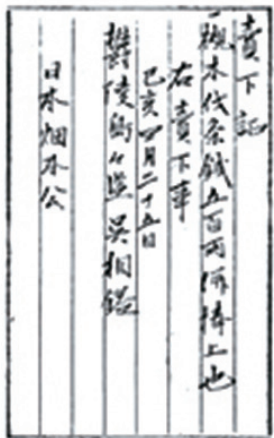 賣下証
一槻木伐条錢五百両捧上也
右賣下事
己亥四月二十五日
欝陵島々監 吳相鎰
日本烟本公